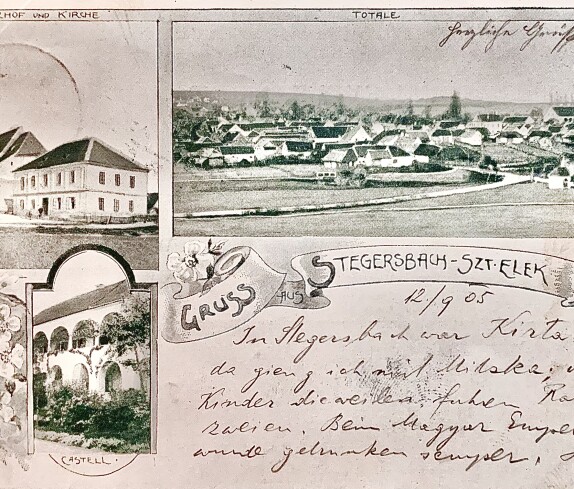 ZHOF UND KIRCHE
TOTALE
Herzliche Grüss
GRUSS
AUS
STEGERSBACH-SZT. ELEK
12./9 05
In Stegersbach war Kirta
da gieng ich mit Milska,
Kinder dieweilen fuhren Ra
zweien. Beim Magyar
wurde getrunken semper,
CASTELL.